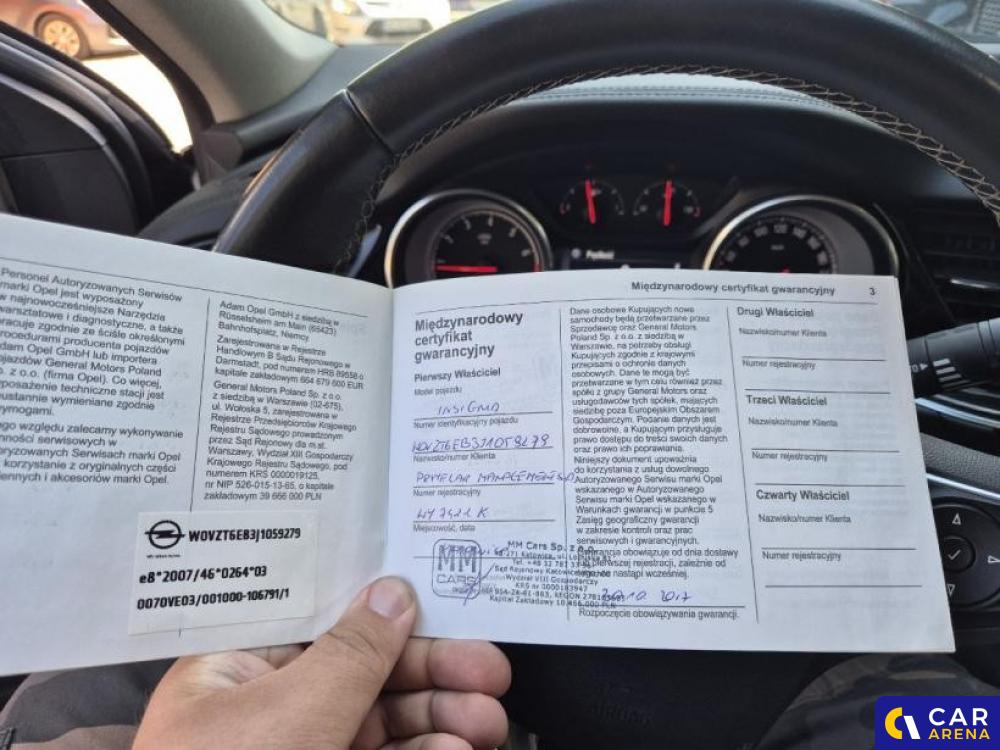 Personel Autoryzowanych Serwisów
marki Opel jest wyposażony
w najnowocześniejsze Narzędzia
warsztatowe i diagnostyczne, a także
pracuje zgodnie ze ściśle określonymi
procedurami producenta pojazdów
Adam Opel GmbH lub importera
pojazdów General Motors Poland
Sp. z o.o. (firma Opel). Co więcej,
wyposażenie techniczne stacji jest
nieustannie wymieniane zgodnie
wymogami.
tego względu zalecamy wykonywanie
czynności serwisowych w
Autoryzowanych Serwisach marki Opel
korzystanie z oryginalnych części
i akcesoriów marki Opel.
Adam Opel GmbH z siedzibą w
Rüsselsheim am Main (65423)
Bahnhofsplatz, Niemcy
Zarejestrowana w Rejestrze
Handlowym B Sądu Rejonowego w
Darmstadt, pod numerem HRB 89558 o
kapitale zakładowym 664 679 000 EUR
General Motors Poland Sp. z o.o.
z siedzibą w Warszawie (02-675),
ul. Wołoska 5, zarejestrowana w
Rejestrze Przedsiębiorców Krajowego
Rejestru Sądowego prowadzonym
przez Sąd Rejonowy dla m.st.
Warszawy, Wydział XIII Gospodarczy
Krajowego Rejestru Sądowego, pod
numerem KRS 0000019125,
nr NIP 526-015-13-65, o kapitale
zakładowym 39 666 000 PLN
W0VZT6EB3J1059279
e8*2007/46*0264*03
0070VE03/001000-106791/1
Międzynarodowy certyfikat gwarancyjny 3
Międzynarodowy
certyfikat
gwarancyjny
Pierwszy Właściciel
Model pojazdu
INSIGNIA
Numer identyfikacyjny pojazdu
W0VZT6EB3J1059279
Nazwisko/numer Klienta
PRYMELAR MANAGEMENT
Numer rejestracyjny
WY7421K
Miejscowość, data
MM
CARS
MM Cars Sp. z o.o.
40-271 Katowice, ul.
Sąd Rejonowy Katowice
Wydział VIII Gospodarczy
KRS nr 0000183947
Kapitał Zakładowy 10.456.000 PLN
Dane osobowe Kupujących nowe
samochody będą przetwarzane przez
Sprzedawcę oraz General Motors
Poland Sp. z o.o. z siedzibą w
Warszawie, na potrzeby obsługi
Kupujących zgodnie z krajowymi
przepisami o ochronie danych
osobowych. Dane te mogą być
przetwarzane w tym celu również przez
spółki z grupy General Motors oraz
usługodawców tych spółek, mających
siedzibę poza Europejskim Obszarem
Gospodarczym. Podanie danych jest
dobrowolne, a Kupującym przysługuje
prawo dostępu do treści swoich danych
oraz prawo ich poprawiania.
Niniejszy dokument upoważnia
do korzystania z usług dowolnego
Autoryzowanego Serwisu marki Opel
wskazanego w Autoryzowanego
Serwisu marki Opel wskazanego w
Warunkach gwarancji w punkcie 5
Zasięg geograficzny gwarancji
w zakresie kontroli oraz prac
serwisowych i gwarancyjnych.
Gwarancja obowiązuje od dnia dostawy
lub pierwszej rejestracji, zależnie od
tego co nastąpi wcześniej.
2017
Rozpoczęcie obowiązywania gwarancji.
Drugi Właściciel
Nazwisko/numer Klienta
Numer rejestracyjny
Trzeci Właściciel
Nazwisko/numer Klienta
Numer rejestracyjny
Czwarty Właściciel
Nazwisko/numer Klienta
Numer rejestracyjny
CAR
ARENA